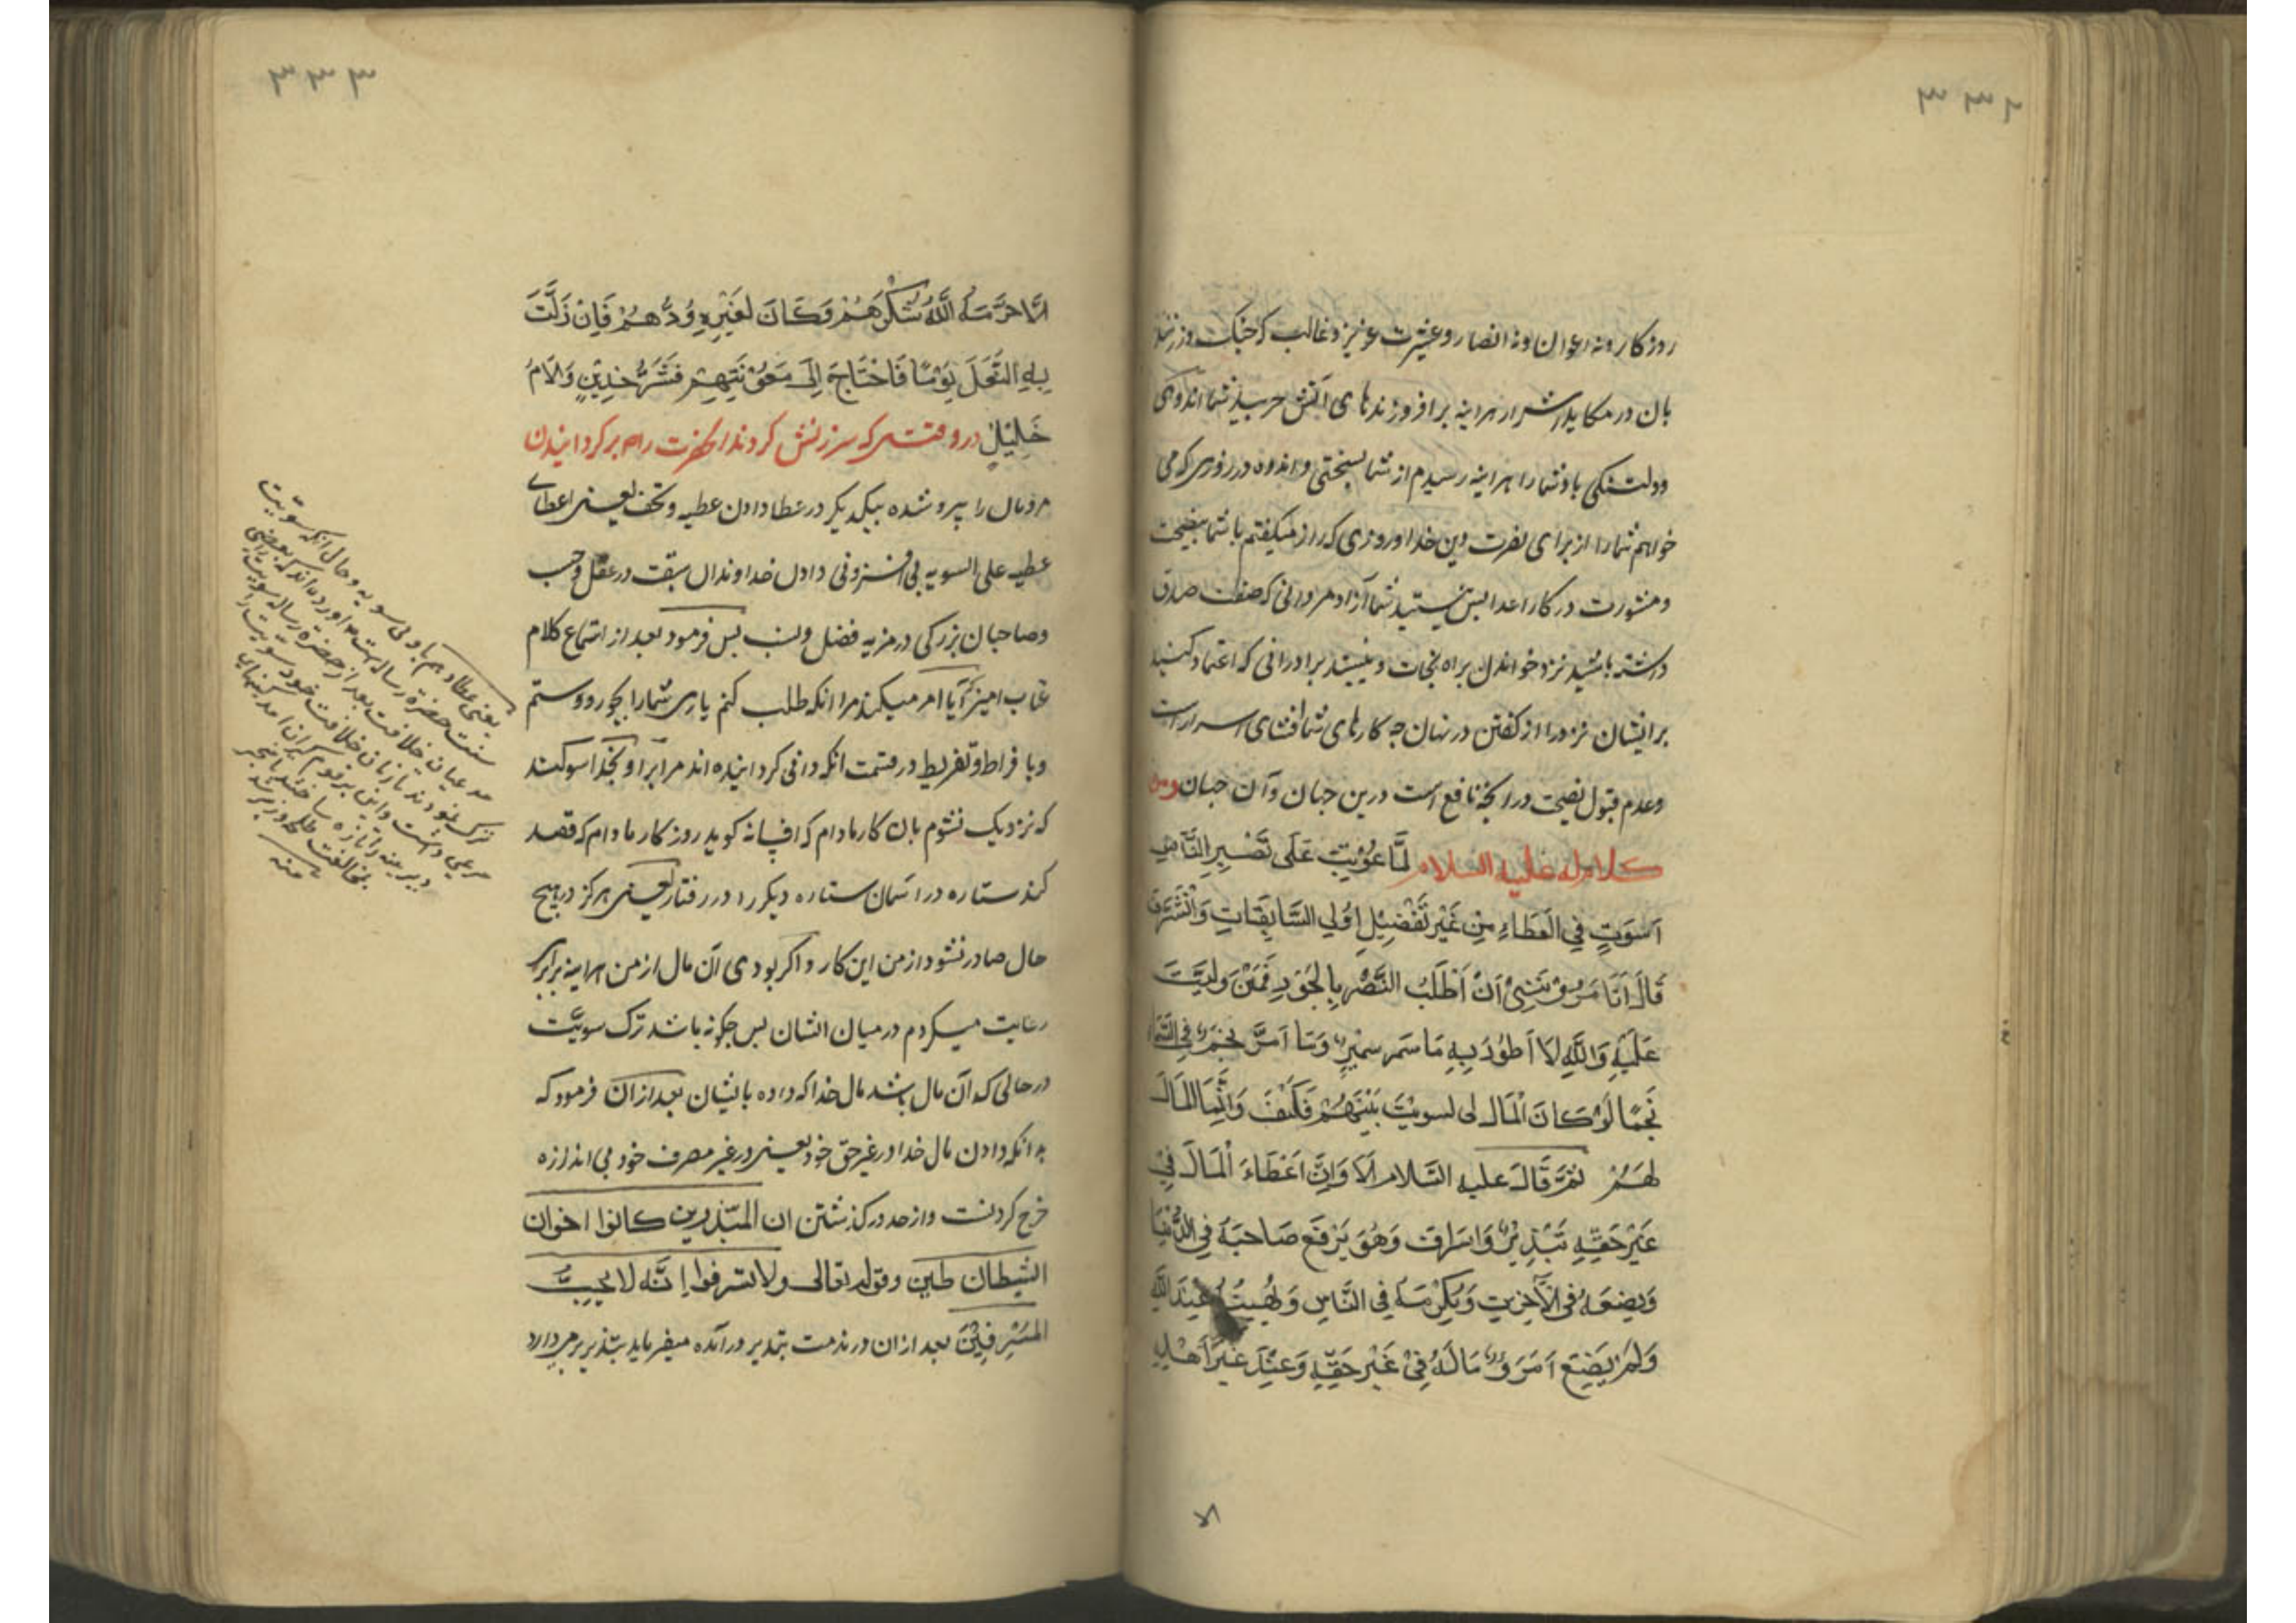 ۳۳۲
روزکار ونه اعوان ونه انصار وعشیرت عزیز وغالب که جنک
بان در مکاید اشرار هراینه بر افروزنده‌های آتش حربید شما اندوهی
ودلتنکی باد شما را هراینه رسیدم از شما بسختی واندوه در روزی که می
خواهم شما را از برای نصرت دین خدا وروزی که راز میکفتم با شما بنصیحت
ومشورت در کار اعدا پس نیستید شما آزاد مردانی که صفت صدق
داشته باشید نزد خواندن براه نجات ونیستید برادرانی که اعتماد کنید
برایشان نزد راز کفتن در نهان چه کارهای شما افشای اسرار است
وعدم قبول نصیحت در انچه نافع است درین جهان وآن جهان ومن
کلام له علیه السلام لَمَّا عُوتِبَ عَلَى تَصْیِیرِ النَّاسِ
اَسْوَةٍ فِي الْعَطَاءِ مِنْ غَيْرِ تَفْضِيلِ اُولِي السَّابِقَاتِ وَالشَّرَفِ
قَالَ اَتَأمُرُونَنِي اَنْ اَطْلُبَ النَّصْرَ بِالْجَوْرِ فِيمَنْ وَلِيتُ
عَلَيْهِ وَاللَّهِ لَا اَطُورُ بِهِ مَا سَمَرَ سَمِيرٌ وَمَا اَمَّ نَجْمٌ فِي السَّمَاءِ
نَجْمًا لَوْ كَانَ الْمَالُ لى لسويت بَيْنَهُمْ فَكَيْفَ وَاِنَّمَا الْمَالُ
لَهُمْ ثُمَّ قَالَ عليه السَّلام اَلَا وَاِنَّ اِعْطَاءَ الْمَالَ فِي
غَيْرِ حَقِّهِ تَبْذِيرٌ وَاِسْرَافٌ وَهُوَ يَرْفَعُ صَاحِبَهُ فِي الدُّنْيَا
وَيَضَعُهُ فِي الْآخِرَةِ وَيُكْرِمُهُ فِي النَّاسِ وَيُهِينُهُ عِنْدَ اللَّهِ
وَلَمْ يَضَعِ امْرَؤٌ مَالَهُ فِي غَيْرِ حَقِّهِ وَعِنْدَ غَيْرِ اَهْلِهِ
الا
۳۳۳
اِلَّا حَرَّمَهُ اللَّهُ شُكْرَهُمْ وَكَانَ لِغَيْرِهِ وُدُّهُمْ فَاِنْ زَلَّتْ
بِهِ النَّعْلُ يَوْمًا فَاحْتَاجَ اِلَى مَعُونَتِهِمْ فَشَرُّ خَدِينٍ وَاَلْاَمُ
خَلِيلٍ در وقتی که سرزنش کردند انحضرت را بر کردانیدن
مردمان را پیرو شده بیکدیکر در عطا دادن عطیه وتحف یعنی اعطای
عطیه علی السویه بی افزونی دادن خداوندان سبقت در عقل وحسب
وصاحبان بزرکی در مزیه فضل ونسب پس فرمود بعد از استماع کلام
عتاب امیز که آیا امر میکنید مرا انکه طلب کنم یاری شما را بجور وستم
وبا فراط وتفریط در قسمت انکه والی کردانیده اند مرا بر او بخدا سوکند
که نزدیک نشوم بان کار مادام که افسانه کوید روزکار مادام که قصد
کند ستاره در اسمان ستاره دیکر را در رفتار یعنی هرکز در هیچ
حال صادر نشود از من این کار واکر بودی آن مال از من هراینه برابری
رعایت میکردم در میان ایشان پس چکونه باشد ترک سویت
در حالی که آن مال باشد مال خدا که داده بایشان بعد از ان فرمود که
بدانکه دادن مال خدا در غیر حق خود یعنی در غیر مصرف خود بی اندازه
خرج کردنست واز حد در کذشتن ان المبذرین کانوا اخوان
الشیطان طین وقوله تعالی ولا تسرفوا اِنَّه لا یُحِبُّ
الْمُسْرِفِینَ بعد از ان در مذمت تبذیر در آمده میفرماید
یعنی عطا دهم باولی سویه وحال انکه سویت
سنت حضرة رسالتست اورده اند که بعضی
مدعیان خلافت بعد از حضرة رساله سویت را
ترک نمودند تا زمان خلافت خود سویت را
مرعی داشت واین بر قوم کران امد
دیرینه را تازه ساختند
بمخالفت طلحه وزبیر
منه